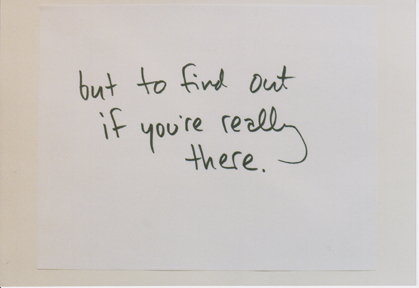 but to find out
if you're really
there.